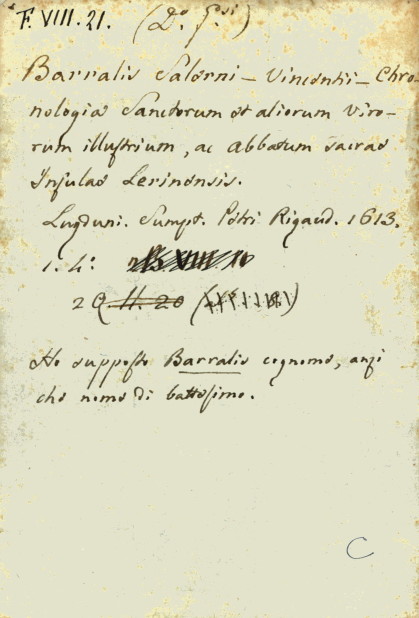 F. VIII. 21. (Do. G.si)
Barralis Salerni - Vincentii - Chro-
nologia Sanctorum et aliorum viro-
rum illustrium, ac Abbatum sacrae
Insulae Lerinensis.
Lugduni. Sumpt. Petri Rigaud. 1613.
1. 4.º
2 Q. H. 20
Ho supposto Barralis cognome, anzi
che nome di battesimo.
C